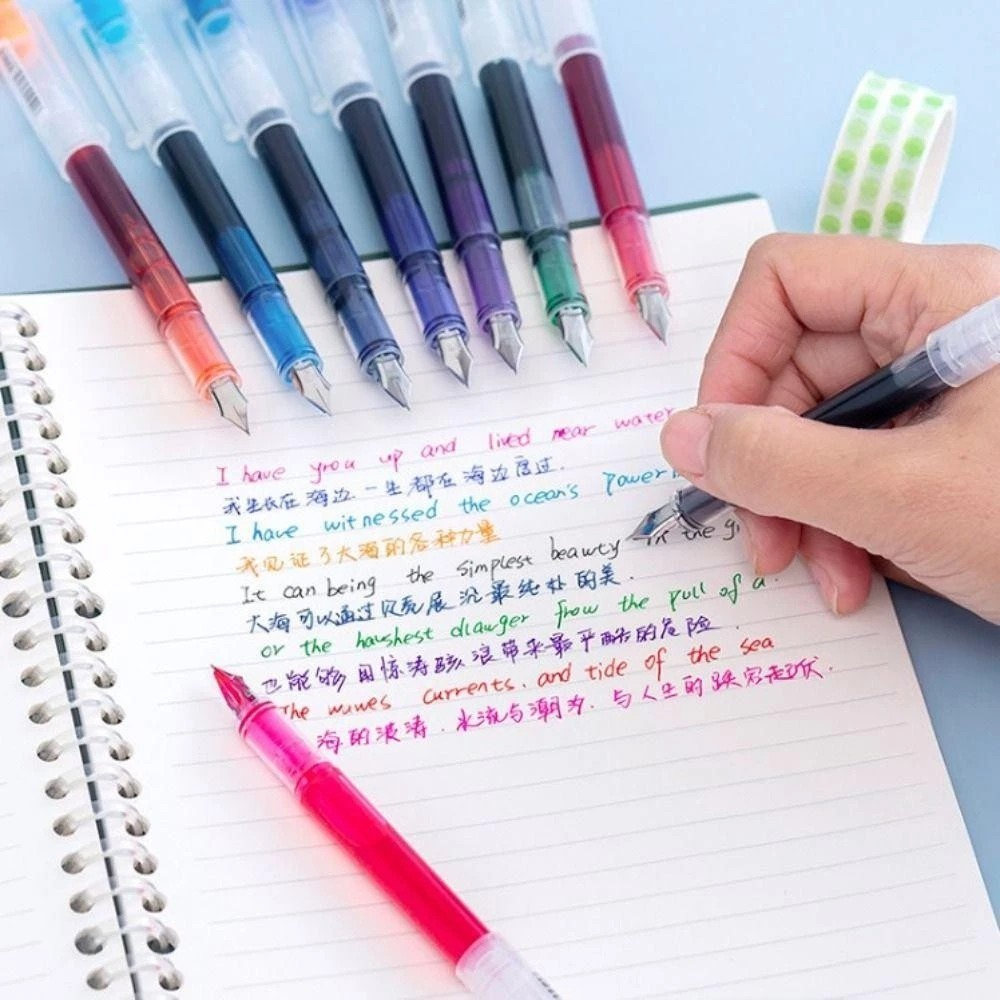 I have you up and lived near water
我生长在海边一生都在海边度过.
I have witnessed the ocean's power
我见证了大海的各种力量
It can being the simplest beauty in the gi
大海可以通过贝壳展沉最纯朴的美.
or the haushest dlawger from the pull of a.
也能够用惊涛骇浪带来最严酷的危险.
The wuwes currents. and tide of the sea
海的浪涛.水流与潮汐.与人生的跌宕起伏.